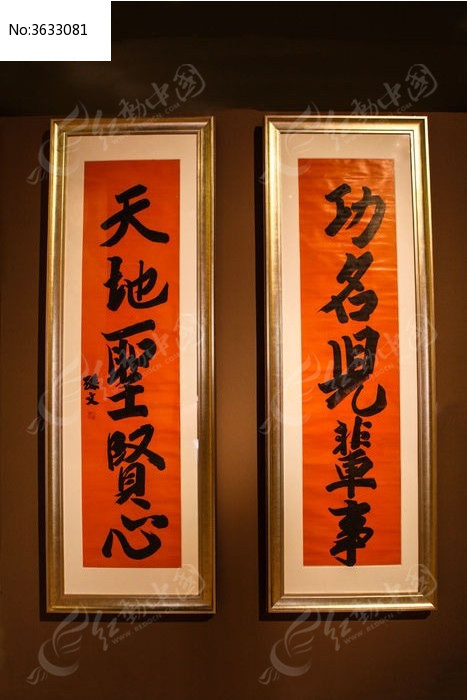 No:3633081
功名兒輩事
天地聖賢心
孫文
红动中国